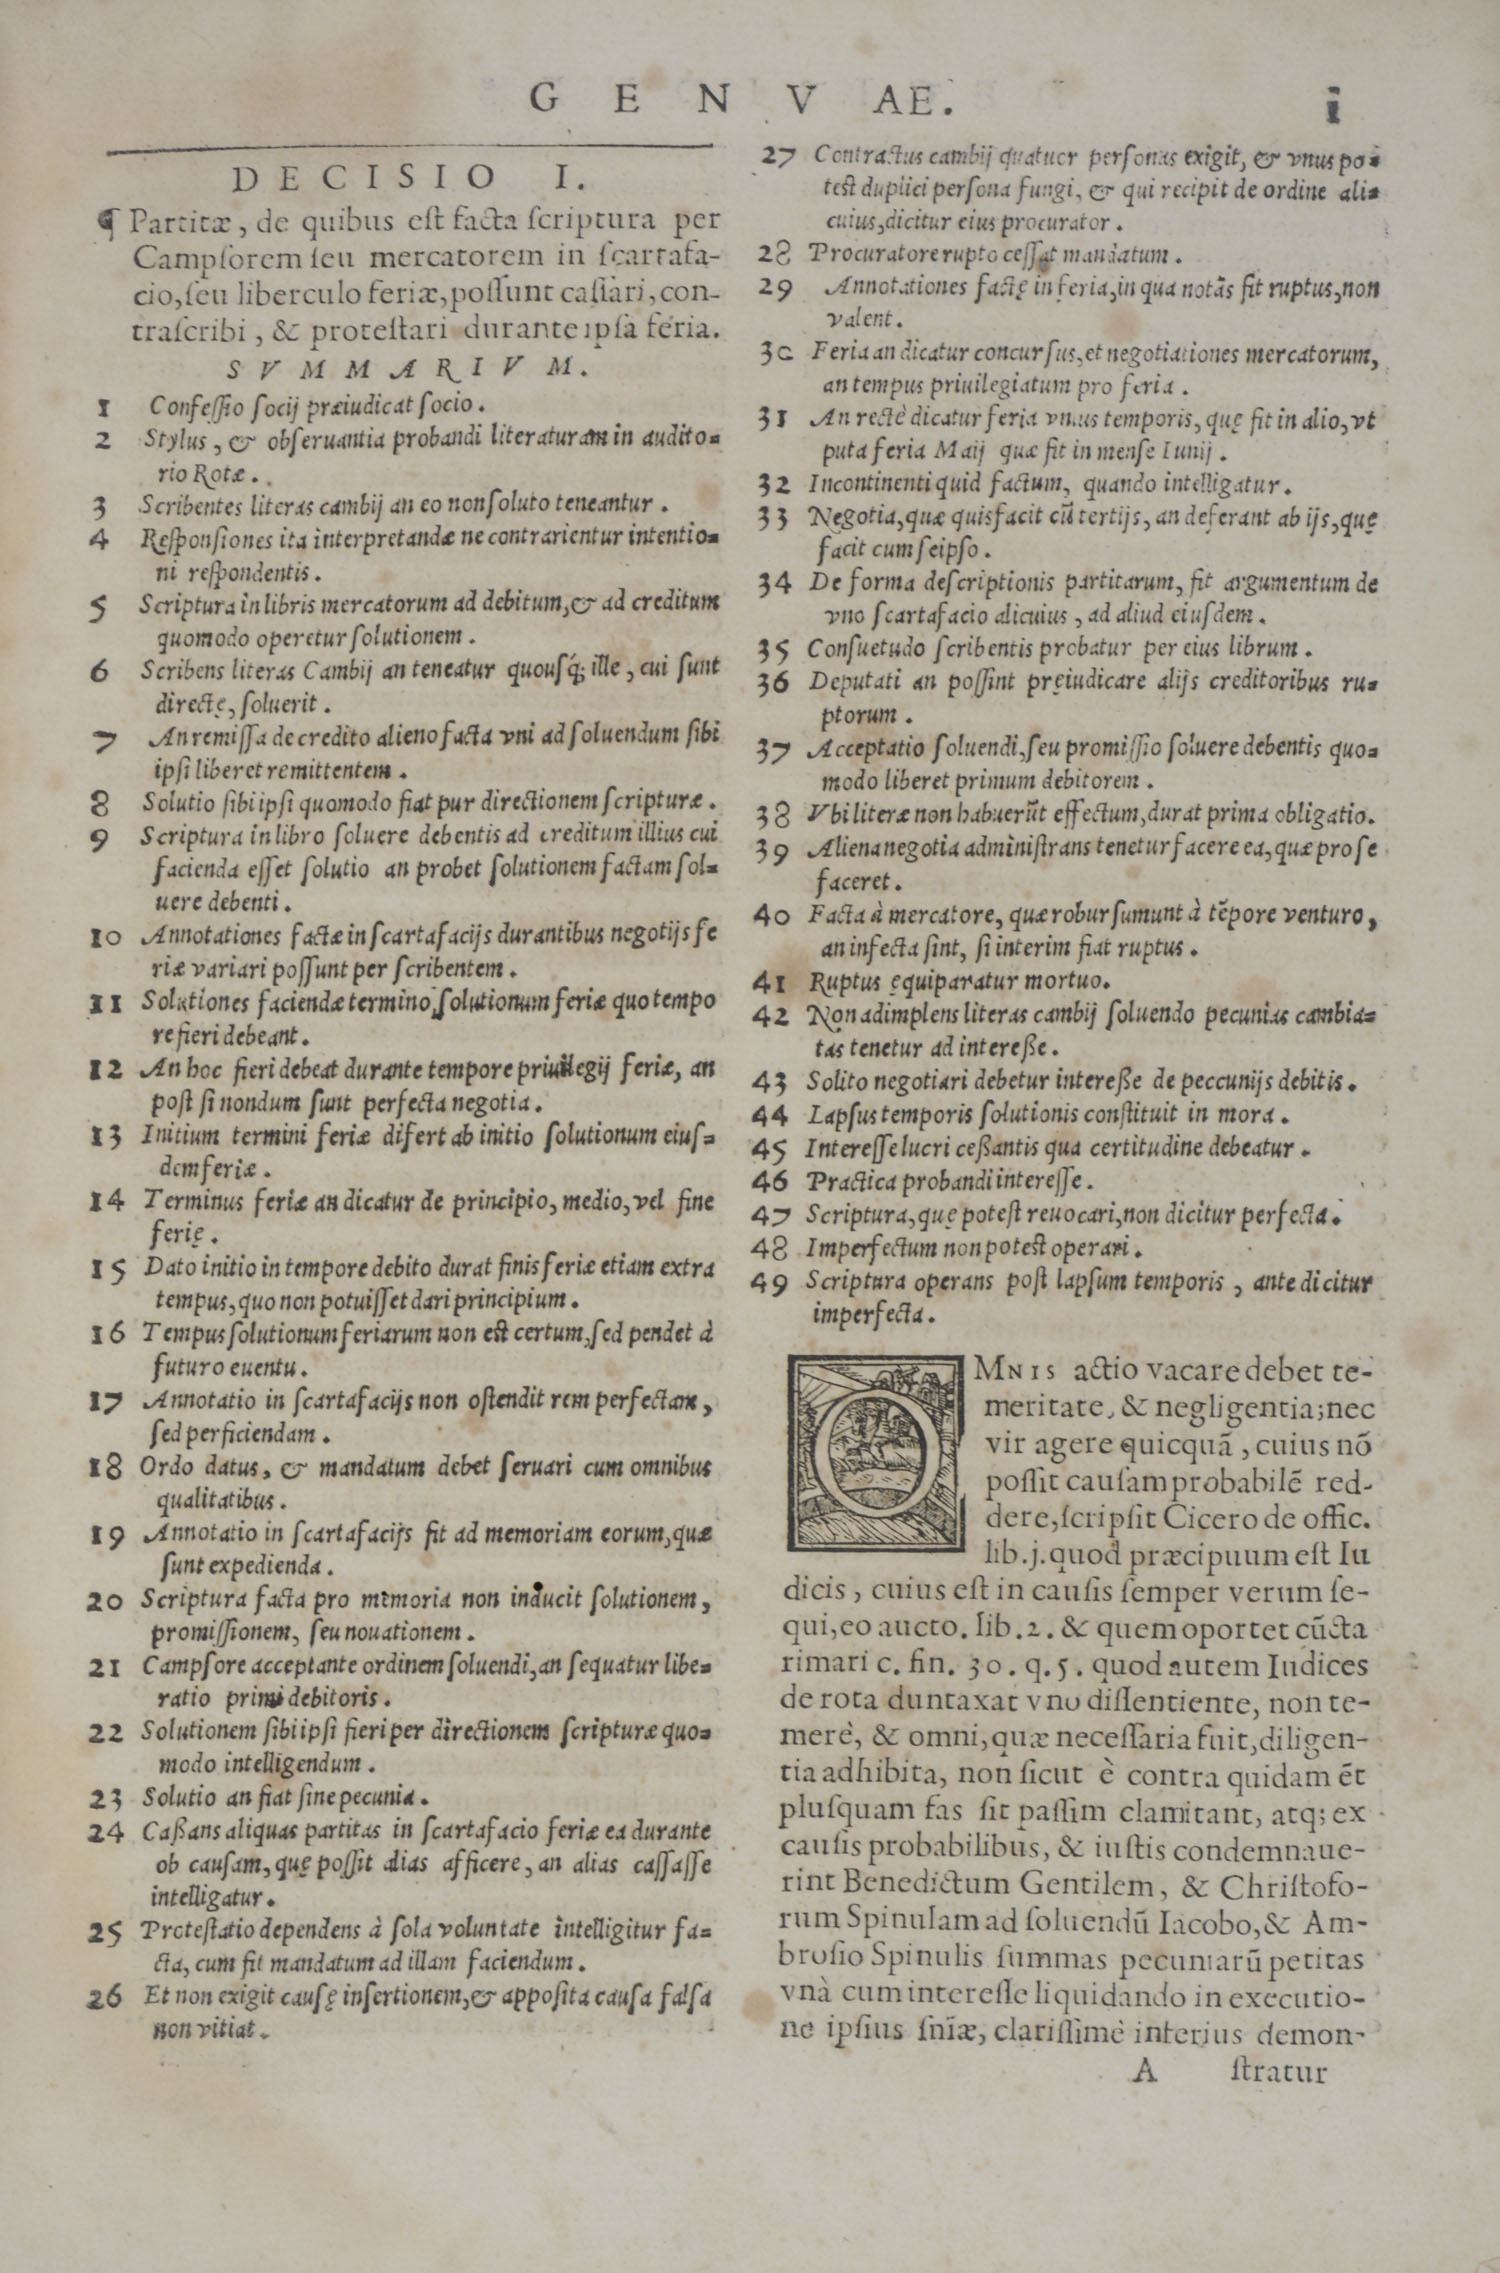 GENVAE.
i
DECISIO I.
¶ Partitæ, de quibus est facta scriptura per
Campsorem seu mercatorem in scartafa-
cio, seu liberculo feriæ, possunt cassari, con-
trascribi, & protestari durante ipsa feria.
SVMMARIVM.
1 Confessio socij præiudicat socio.
2 Stylus, & obseruantia probandi literaturam in audito-
rio Rotæ.
3 Scribentes literas cambij an eo non soluto teneantur.
4 Responsiones ita interpretandæ ne contrarientur intentio-
ni respondentis.
5 Scriptura in libris mercatorum ad debitum, & ad creditum
quomodo operetur solutionem.
6 Scribens literas Cambij an teneatur quousq; ille, cui sunt
directę, soluerit.
7 An remissa de credito alieno facta vni ad soluendum sibi
ipsi liberet remittentem.
8 Solutio sibi ipsi quomodo fiat pur directionem scripturæ.
9 Scriptura in libro soluere debentis ad creditum illius cui
facienda esset solutio an probet solutionem factam sol-
uere debenti.
10 Annotationes factæ in scartafacijs durantibus negotijs fe
riæ variari possunt per scribentem.
11 Solutiones faciendæ termino solutionum feriæ quo tempo
re fieri debeant.
12 An hoc fieri debeat durante tempore priuilegij feriæ, an
post si nondum sunt perfecta negotia.
13 Initium termini feriæ difert ab initio solutionum eius-
dem feriæ.
14 Terminus feriæ an dicatur de principio, medio, vel fine
ferię.
15 Dato initio in tempore debito durat finis feriæ etiam extra
tempus, quo non potuisset dari principium.
16 Tempus solutionum feriarum non est certum, sed pendet à
futuro euentu.
17 Annotatio in scartafacijs non ostendit rem perfectam,
sed perficiendam.
18 Ordo datus, & mandatum debet seruari cum omnibus
qualitatibus.
19 Annotatio in scartafacijs fit ad memoriam eorum, quæ
sunt expedienda.
20 Scriptura facta pro memoria non inducit solutionem,
promissionem, seu nouationem.
21 Campsore acceptante ordinem soluendi, an sequatur libe-
ratio primi debitoris.
22 Solutionem sibi ipsi fieri per directionem scripturæ quo-
modo intelligendum.
23 Solutio an fiat sine pecunia.
24 Caßans aliquas partitas in scartafacio feriæ ea durante
ob causam, quę possit alias afficere, an alias cassasse
intelligatur.
25 Protestatio dependens à sola voluntate intelligitur fa-
cta, cum fit mandatum ad illam faciendum.
26 Et non exigit causę insertionem, & apposita causa falsa
non vitiat.
27 Contractus cambij quatuor personas exigit, & vnus po-
test duplici persona fungi, & qui recipit de ordine ali-
cuius, dicitur eius procurator.
28 Procuratore rupto cessat mandatum.
29 Annotationes factę in feria, in qua notãs fit ruptus, non
valent.
30 Feria an dicatur concursus, et negotiationes mercatorum,
an tempus priuilegiatum pro feria.
31 An rectè dicatur feria vnius temporis, quę fit in alio, vt
puta feria Maij quæ fit in mense Iunij.
32 Incontinenti quid factum, quando intelligatur.
33 Negotia, quæ quis facit cũ tertijs, an deferant ab ijs, quę
facit cum seipso.
34 De forma descriptionis partitarum, fit argumentum de
vno scartafacio alicuius, ad aliud eiusdem.
35 Consuetudo scribentis probatur per eius librum.
36 Deputati an possint pręiudicare alijs creditoribus ru-
ptorum.
37 Acceptatio soluendi, seu promissio soluere debentis quo-
modo liberet primum debitorem.
38 Vbi literæ non habuerũt effectum, durat prima obligatio.
39 Aliena negotia administrans tenetur facere ea, quæ pro se
faceret.
40 Facta à mercatore, quæ robur sumunt à tẽpore venturo,
an infecta sint, si interim fiat ruptus.
41 Ruptus ęquiparatur mortuo.
42 Non adimplens literas cambij soluendo pecunias cambia-
tas tenetur ad intereße.
43 Solito negotiari debetur intereße de peccunijs debitis.
44 Lapsus temporis solutionis constituit in mora.
45 Interesse lucri ceßantis qua certitudine debeatur.
46 Practica probandi interesse.
47 Scriptura, quę potest reuocari, non dicitur perfecta.
48 Imperfectum non potest operari.
49 Scriptura operans post lapsum temporis, ante dicitur
imperfecta.
OMNIS actio vacare debet te-
meritate, & negligentia; nec
vir agere quicquã, cuius nõ
possit causam probabilẽ red-
dere, scripsit Cicero de offic.
lib. j. quod præcipuum est Iu
dicis, cuius est in causis semper verum se-
qui, eo aucto. lib. 2. & quem oportet cũcta
rimari c. fin. 30. q. 5. quod autem Iudices
de rota duntaxat vno dissentiente, non te-
merè, & omni, quæ necessaria fuit, diligen-
tia adhibita, non sicut è contra quidam ẽt
plusquam fas sit passim clamitant, atq; ex
causis probabilibus, & iustis condemnaue-
rint Benedictum Gentilem, & Christofo-
rum Spinulam ad soluendũ Iacobo, & Am-
brosio Spinulis summas pecuniarũ petitas
vnà cum interesse liquidando in executio-
ne ipsius sñiæ, clarissimè interius demon-
A stratur